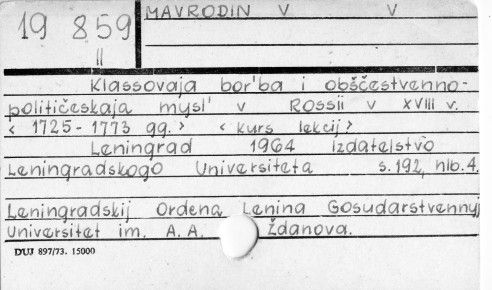 19 859
II
MAVRODIN V V
Klassovaja bor'ba i obščestvenno-
političeskaja mysl' v Rossii v XVIII v.
< 1725-1773 gg. > < kurs lekcij >
Leningrad 1964 izdatelstvo
Leningradskogo Universiteta s.192, nlb.4.
Leningradskij Ordena Lenina Gosudarstvennyj
Universitet im. A.A. Ždanova.
DUJ 897/73. 15000